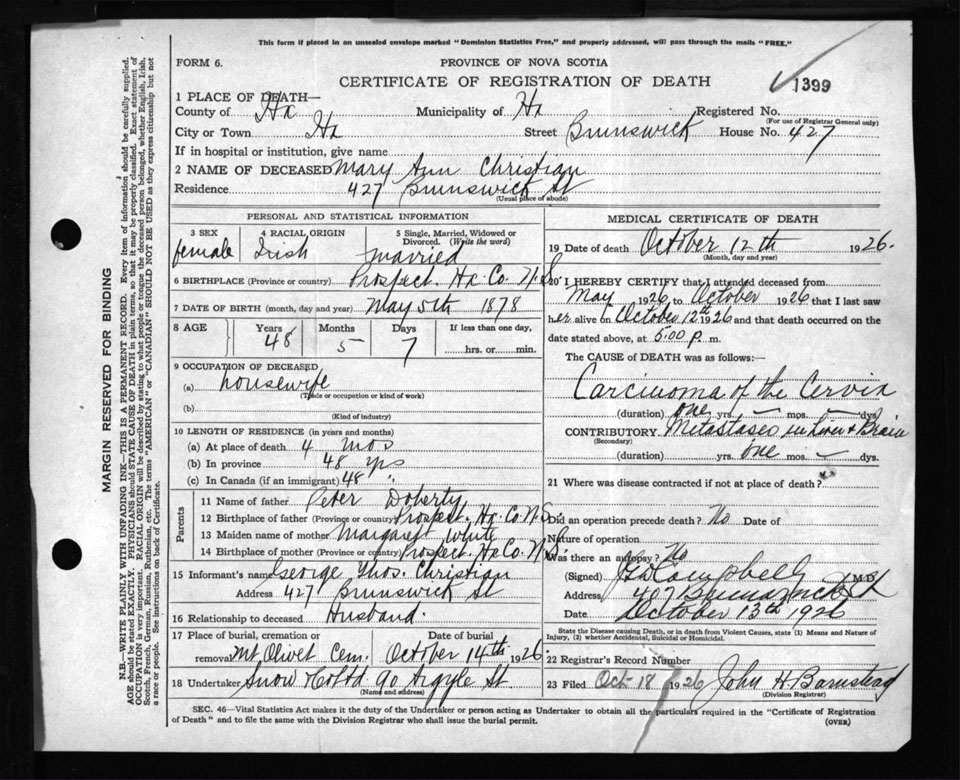 This form if placed in an unsealed envelope marked "Dominion Statistics Free," and properly addressed, will pass through the mails "FREE."
FORM 6.
PROVINCE OF NOVA SCOTIA
CERTIFICATE OF REGISTRATION OF DEATH
✓ 1399
1 PLACE OF DEATH—
County of Hx Municipality of Hx Registered No.
(For use of Registrar General only)
City or Town Hx Street Brunswick House No. 427
If in hospital or institution, give name
2 NAME OF DECEASED Mary Ann Christian
Residence 427 Brunswick St
(Usual place of abode)
PERSONAL AND STATISTICAL INFORMATION
3 SEX female
4 RACIAL ORIGIN Irish
5 Single, Married, Widowed or Divorced. (Write the word) married
6 BIRTHPLACE (Province or country) Prospect. Hx Co. N.S.
7 DATE OF BIRTH (month, day and year) May 5th 1878
8 AGE Years 48 Months 5 Days 7 If less than one day, hrs. or min.
9 OCCUPATION OF DECEASED
(a) housewife
(Trade or occupation or kind of work)
(b)
(Kind of industry)
10 LENGTH OF RESIDENCE (in years and months)
(a) At place of death 4 mos
(b) In province 48 yrs
(c) In Canada (if an immigrant) 48 "
Parents
11 Name of father Peter Doherty
12 Birthplace of father (Province or country) Prospect. Hx. Co. N.S.
13 Maiden name of mother Margaret White
14 Birthplace of mother (Province or country) Prospect. Hx Co. N.S.
15 Informant's name George Thos. Christian
Address 427 Brunswick St
16 Relationship to deceased Husband.
17 Place of burial, cremation or removal Mt Olivet Cem. Date of burial October 14th 1926.
18 Undertaker Snow & Co Ltd 90 Argyle St.
(Name and address)
MEDICAL CERTIFICATE OF DEATH
19 Date of death October 12th 1926.
(Month, day and year)
20 I HEREBY CERTIFY that I attended deceased from
May 1926 to October 1926 that I last saw
her alive on October 12th 1926 and that death occurred on the
date stated above, at 5:00 P. m.
The CAUSE OF DEATH was as follows:
Carcinoma of the Cervix
(duration) one yrs. — mos. — dys.
CONTRIBUTORY. Metastases in Liver & Brain
(Secondary)
(duration) yrs. one mos. — dys.
21 Where was disease contracted if not at place of death?
Did an operation precede death? No Date of
Nature of operation
Was there an autopsy? No
(Signed) Campbell M.D.
Address 407 Brunswick St
Date October 13th 1926
State the Disease causing Death, or in death from Violent Causes, state (1) Means and Nature of
Injury, (2) whether Accidental, Suicidal or Homicidal.
22 Registrar's Record Number
23 Filed Oct-18 1926 John H Barnstead
(Division Registrar)
SEC. 46—Vital Statistics Act makes it the duty of the Undertaker or person acting as Undertaker to obtain all the particulars required in the "Certificate of Registration
of Death" and to file the same with the Division Registrar who shall issue the burial permit.
(OVER)
MARGIN RESERVED FOR BINDING
N.B.—WRITE PLAINLY WITH UNFADING INK—THIS IS A PERMANENT RECORD. Every item of information should be carefully supplied.
AGE should be stated EXACTLY. PHYSICIANS should STATE CAUSE OF DEATH in plain terms, so that it may be properly classified. Exact statement of
OCCUPATION is very important. RACIAL ORIGIN will be described by stating to what people or tongue the deceased person belonged, whether English, Irish,
Scotch, French, German, Russian, Ruthenian, etc. The terms "AMERICAN" or "CANADIAN" SHOULD NOT BE USED as they express citizenship but not
a race or people. See instructions on back of Certificate.